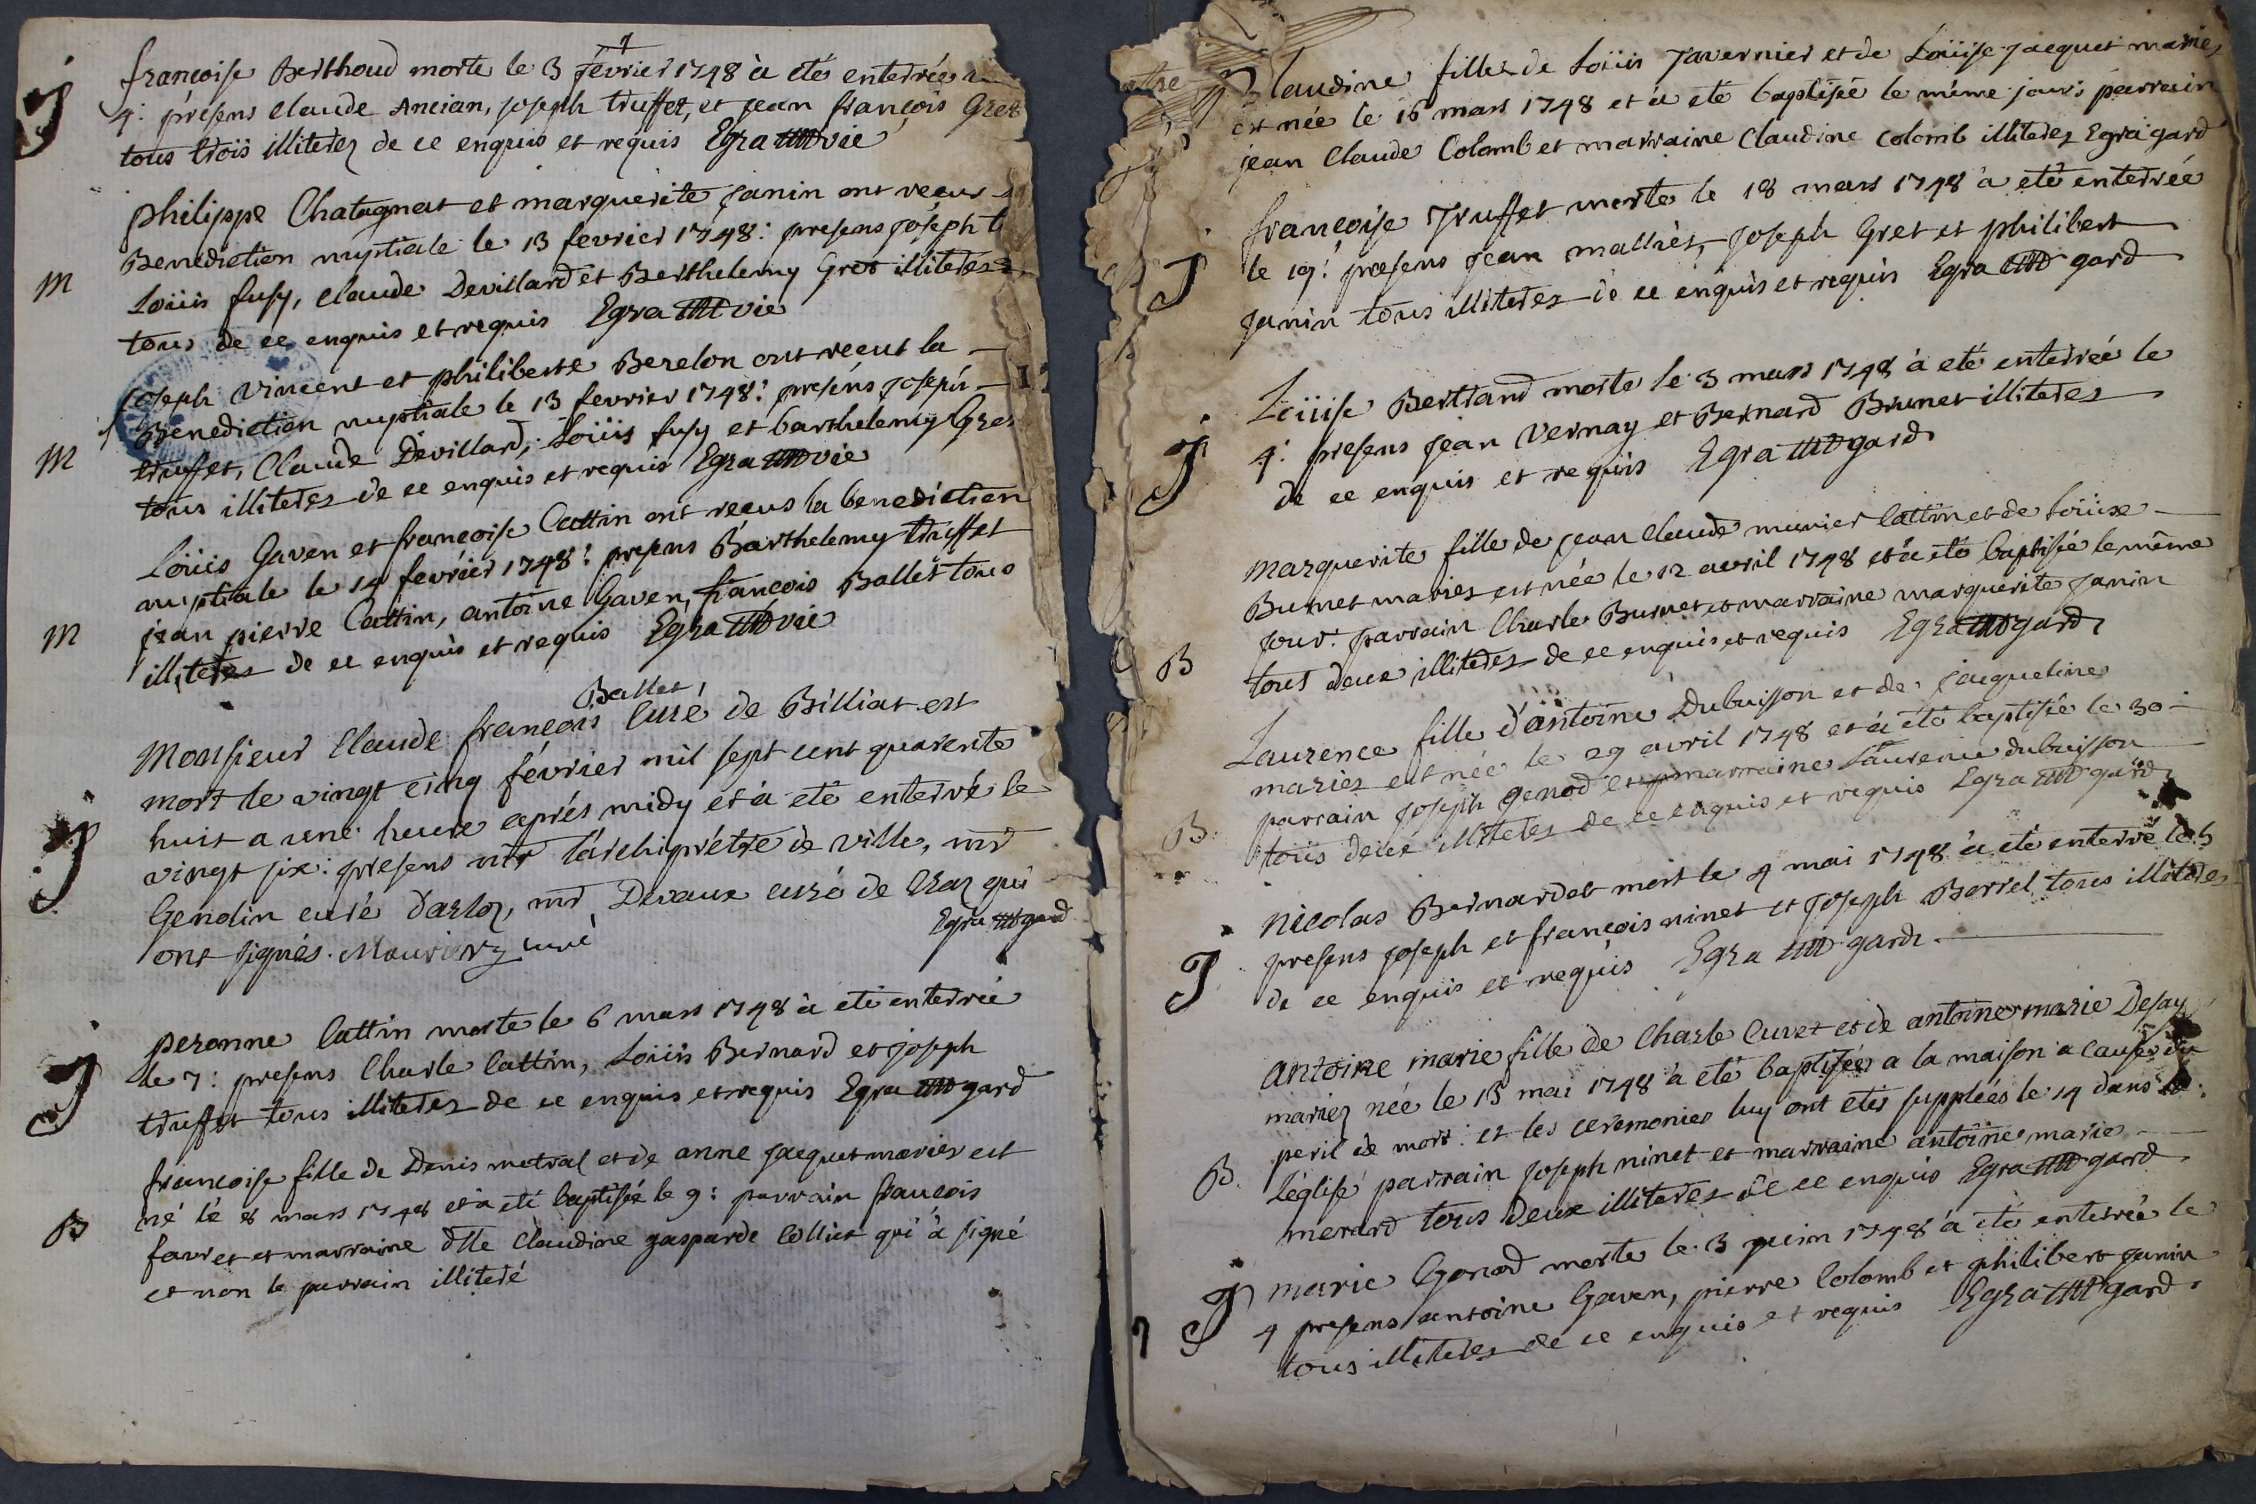 françoise Berthoud morte le 3 février 1748 à eté enterrée
4: présens Claude Ancian, joseph truffet, et jean françois Gret
tous trois illiterez de ce enquis et requis Egra vic
philippe Chatagnat et marguerite janin ont recus
M
Benediction nuptiale le 13 fevrier 1748: presens joseph t
Loüis fusy, claude Devillard et Berthelemy Gret illiteres
tous de ce enquis et requis Egra vic
joseph vincent et philiberte Berelon ont recut la
M
Benediction nuptiale le 13 fevrier 1748: presens joseph
truffet, Claude Devillard, Loüis fusy et barthelemy Gret
tous illiteres de ce enquis et requis Egra vic
Loüis Gaven et françoise Cattin ont recus la benediction
M
nuptiale le 14 fevrier 1748: presens Barthelemy truffet
jean pierre Cattin, antoine Gaven, francois Ballet tous
illiteres de ce enquis et requis Egra vic
Ballet
Monsieur Claude françois Curé de Billiat est
mort le vingt cinq février mil sept cent quarente
J
huit a une heure aprés midy et à eté enterré le
vingt six: presens mr l'archiprétre de ville, mr
Genolin curé d'arloz, mr Devaux curé de Craz qui
ont signés. curé Egra gard
J
peronne Cattin morte le 6 mars 1748 à eté enterrée
le 7: presens Charle Cattin, Loüis Bernard et joseph
truffet tous illiteres de ce enquis et requis Egra gard
françoise fille de Denis metral et de anne jacquet mariez est
B
né le 8 mars 1748 et à eté baptisée le 9: parrain francois
favret et marraine dlle Claudine gasparde Colliet qui à signé
et non le parrain illiteré
Claudine fille de Loüis Tavernier et de Loüise jacquet mariez
est née le 16 mars 1748 et à eté baptisée le méme jour: parrain
jean Claude Colomb et marraine Claudine Colomb illiterez Egra gard
françoise Truffet morte le 18 mars 1748 à eté enterrée
J
le 19: presens jean malliet, joseph Gret et philibert
janin tous illiteres de ce enquis et requis Egra gard
Loüise Bertrand morte le 3 mars 1748 à eté enterrée le
J
4: presens jean vernay et Bernard Brunet illiteres
de ce enquis et requis Egra gard
Marguerite fille de jean claude munier Cattin et de Loüise
Burnet mariez est née le 12 avril 1748 et à eté baptisée le méme
B
jour. parrain Charle Burnet et marraine marguerite janin
tous deux illiteres de ce enquis et requis Egra gard
Laurence fille d'antoine Dubuisson et de jacqueline
mariez est née le 29 avril 1748 et à eté baptisée le 30
B
parrain joseph genod et marraine Laurence dubuisson
tous deux illiteres de ce enquis et requis Egra gard
Nicolas Bernardet mort le 4 mai 1748 à eté enterré le 5
J
presens joseph et françois ninet et joseph Borrel tous illiteres
de ce enquis et requis Egra gard
antoine marie fille de Charle Curet et de antoine marie Dejay
mariez née le 13 mai 1748 à eté baptisée a la maison a cause du
peril de mort: et les ceremonies luy ont etés suppléés le 14 dans
B.
l'église parrain joseph ninet et marraine antoine marie
merard tous deux illiteres de ce enquis Egra gard
J
marie Genod morte le 3 juin 1748 à eté enterrée le
4 presens antoine Gaven, pierre Colomb et philibert janin
tous illiteres de ce enquis et requis Egra gard